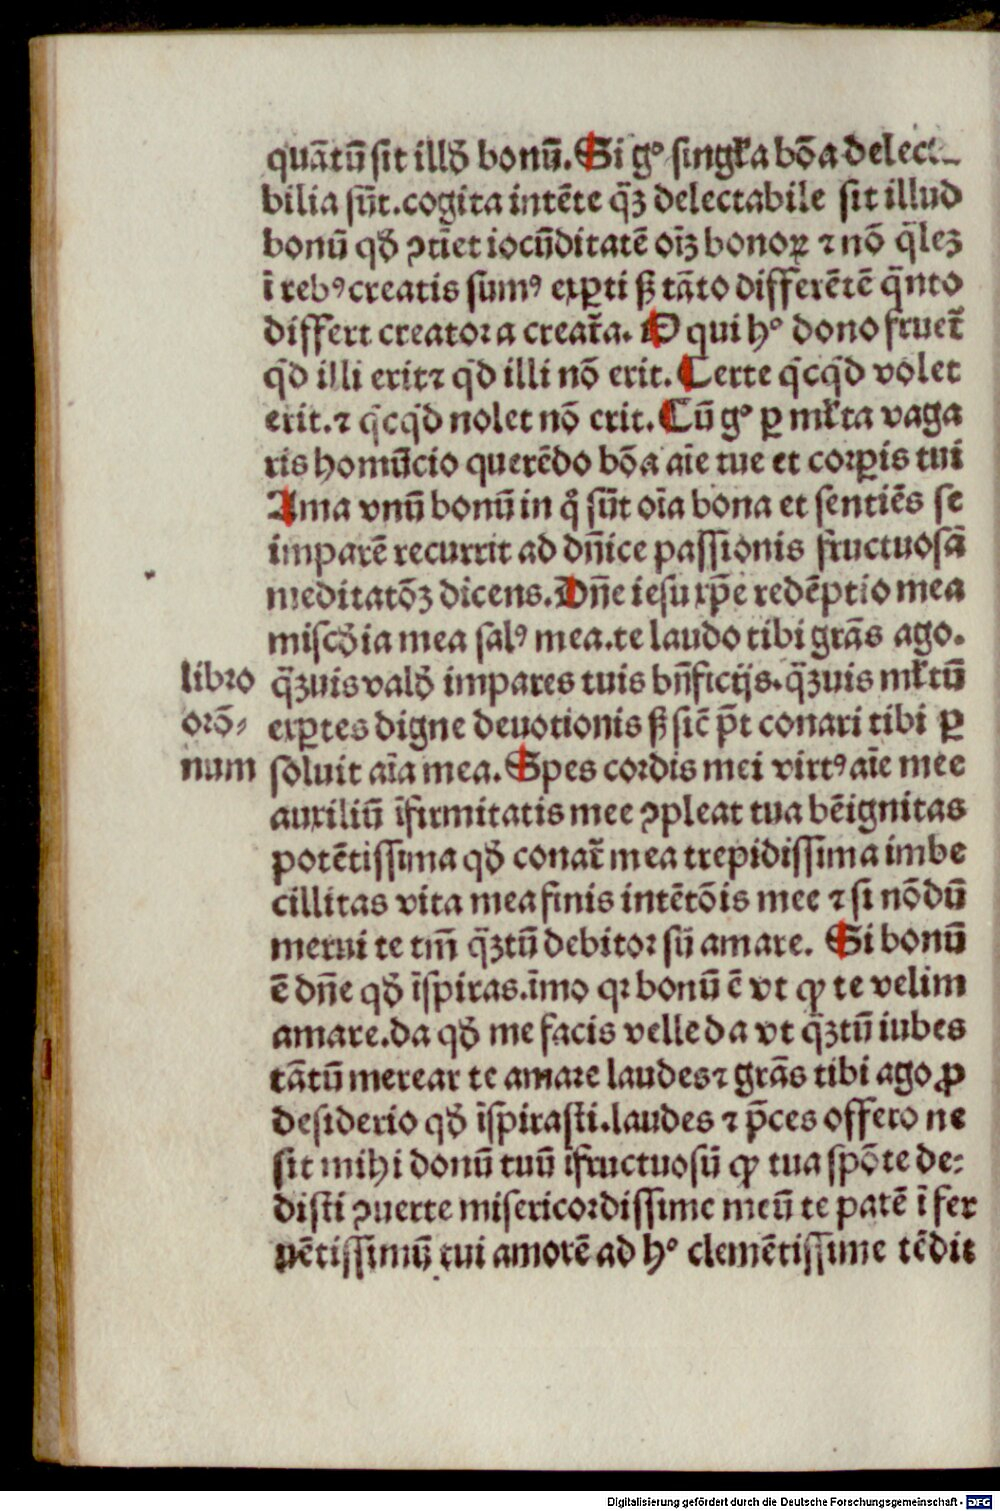 quãtũ sit illđ bonũ. Si gº singl̃a bõa delect
bilia sũt. cogita intẽte q̃ꝫ delectabile sit illud
bonũ qđ ꝯtiẽt iocũditatẽ oĩꝫ bonoꝝ ⁊ nõ q̃leꝫ
ĩ rebꝰ creatis sumꝰ exꝑti sꝫ tãto differẽtẽ q̃nto
differt creator a creat̃a. O qui hº bono fruet̃
q̇d illi erit ⁊ q̇d illi nõ erit. Certe q̇cq̇d volet
erit. ⁊ q̇cq̇d nolet nõ erit. Cũ gº ꝑ ml̃ta vaga
ris homũcio querẽdo bõa aĩe tue et corꝑis tui
Ama vnũ bonũ in q̊ sũt oĩa bona et sentiẽs se
imparẽ recurrit ad dñice passionis fructuosã
meditatõꝫ dicens. Dñe iesu xp̃e redẽptio mea
miscđia mea salꝰ mea. te laudo tibi grãs ago.
q̃ꝫuis valđ impares tuis bñficijs. q̃ꝫuis ml̃tũ
exꝑtes digne deuotionis sꝫ sic̃ p̃t conari tibi ꝑ
soluit aĩa mea. Spes cordis mei virtꝰ aĩe mee
auxiliũ ĩfirmitatis mee ꝯpleat tua bẽignitas
potẽtissima qđ conat̃ mea trepidissima imbe
cillitas vita mea finis intẽtõis mee ⁊ si nõdũ
merui te tm̃ q̃ꝫtũ debitor sũ amare. Si bonũ
ẽ dñe qđ ĩspiras. ĩmo qꝛ bonũ ẽ vt ꝙ te velim
amare. da qđ me facis velle da vt q̃ꝫtũ iubes
tãtũ merear te amare laudes ⁊ grãs tibi ago ꝓ
desiderio qđ ĩspirasti. laudes ⁊ p̃ces offero ne
sit mihi donũ tuũ ĩfructuosũ ꝙ tua spõte de⸗
disti ꝯuerte misericordissime meũ te patẽ ĩ fer
uẽtissimũ tui amorẽ ad hº clemẽtissime tẽdit
libro
orõ⸗
num
Digitalisierung gefördert durch die Deutsche Forschungsgemeinschaft - DFG